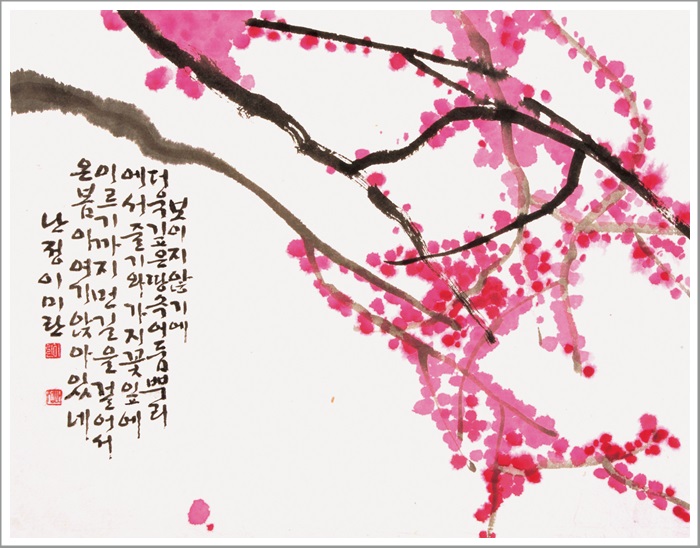 보이지 않기에
더욱 깊은 땅속 어둠 뿌리
에서 줄기와 가지 꽃잎에
이르기까지 먼 길을 걸어서
온 봄아 여기 앉아 있네
난정 이미란